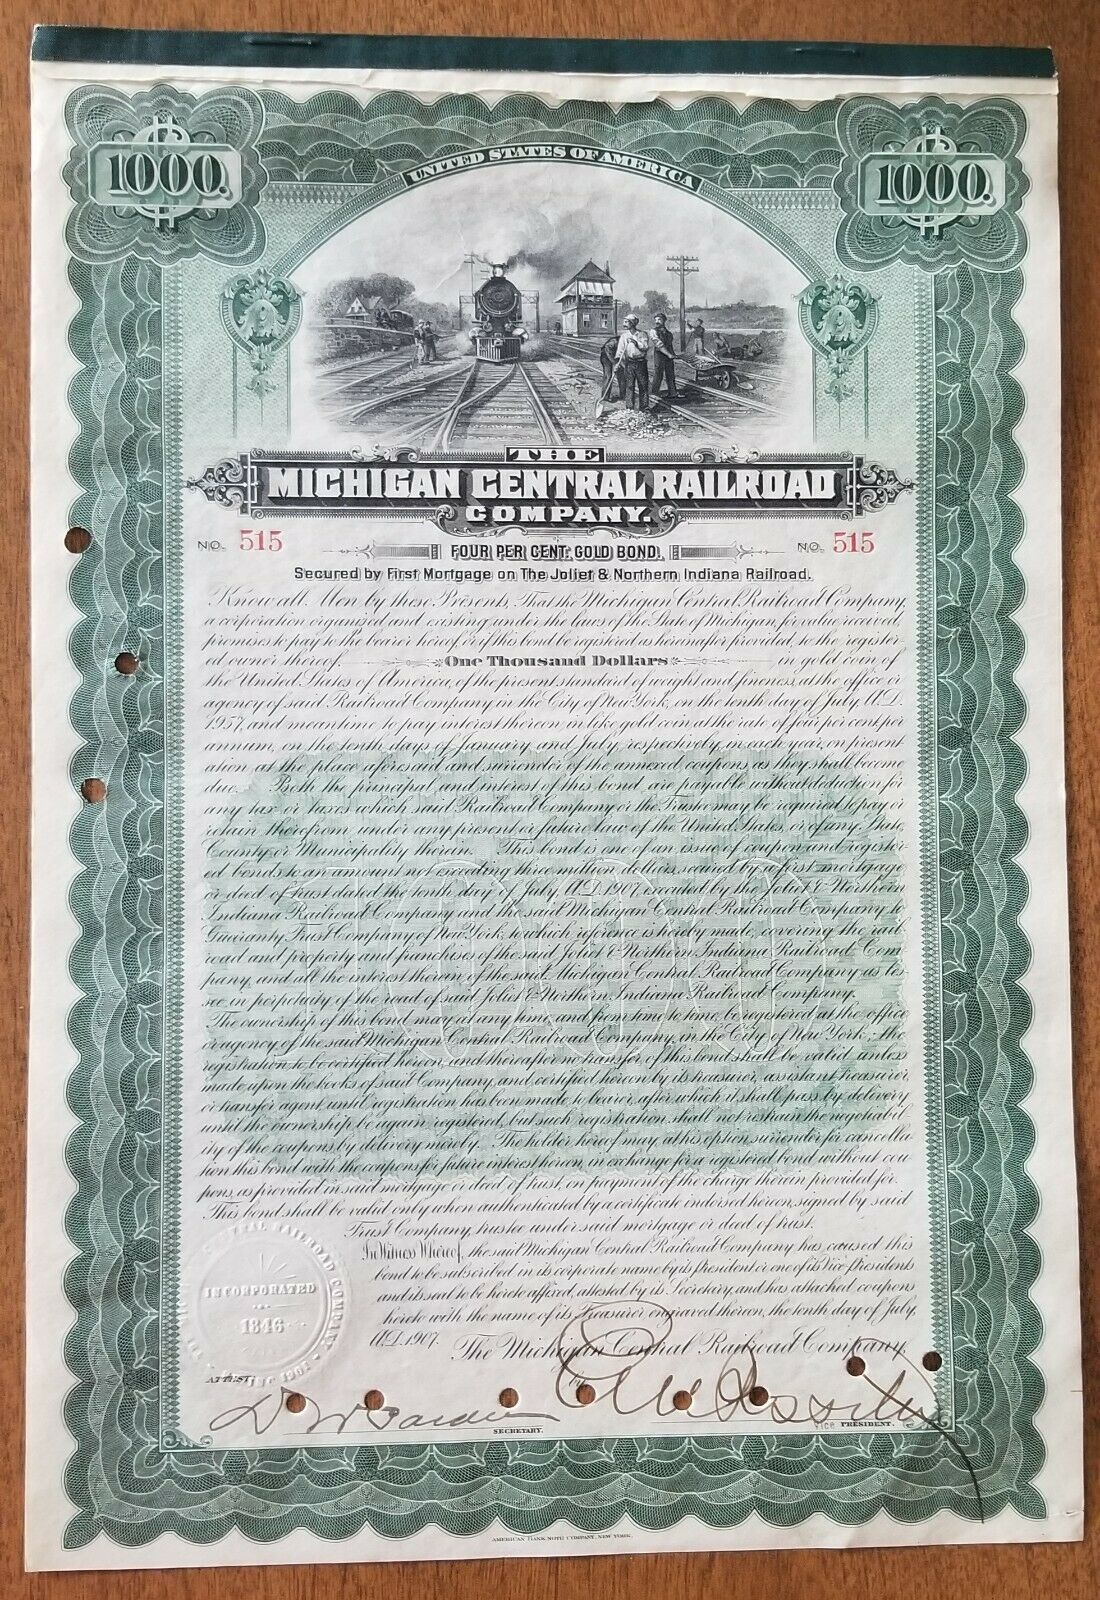 UNITED STATES OF AMERICA
1000. 1000.
THE
MICHIGAN CENTRAL RAILROAD
COMPANY.
NO. 515 NO. 515
FOUR PER CENT. GOLD BOND.
Secured by First Mortgage on The Joliet & Northern Indiana Railroad.
Know all Men by these Presents, That the Michigan Central Railroad Company,
a corporation organized and existing under the laws of the State of Michigan, for value received,
promises to pay to the bearer hereof, or if this bond be registered as hereinafter provided, to the register-
ed owner thereof, One Thousand Dollars in gold coin of
the United States of America, of the present standard of weight and fineness, at the office or
agency of said Railroad Company in the City of New York, on the tenth day of July A.D.
1957, and meantime to pay interest thereon in like gold coin at the rate of four per cent. per
annum, on the tenth days of January and July, respectively, in each year, on present-
ation at the place aforesaid and surrender of the annexed coupons as they shall become
due. Both the principal and interest of this bond are payable without deduction for
any tax or taxes which said Railroad Company or the Trustee may be required to pay or
retain therefrom under any present or future law of the United States, or of any State,
County or Municipality therein. This bond is one of an issue of coupon and register-
ed bonds to an amount not exceeding three million dollars, secured by a first mortgage
or deed of trust dated the tenth day of July A.D. 1907, executed by the Joliet & Northern
Indiana Railroad Company and the said Michigan Central Railroad Company to
Guaranty Trust Company of New York, to which reference is hereby made, covering the rail-
road and property and franchises of the said Joliet & Northern Indiana Railroad Com-
pany, and all the interest therein of the said Michigan Central Railroad Company as les-
see in perpetuity of the road of said Joliet & Northern Indiana Railroad Company.
The ownership of this bond may at any time, and from time to time, be registered at the office
or agency of the said Michigan Central Railroad Company, in the City of New York; the
registration to be certified hereon, and thereafter no transfer of this bond shall be valid unless
made upon the books of said Company, and certified hereon by its treasurer, assistant treasurer,
or transfer agent, until registration has been made to bearer, after which it shall pass by delivery
until the ownership be again registered, but such registration shall not restrain the negotiabil-
ity of the coupons by delivery merely. The holder hereof may, at his option, surrender for cancella-
tion this bond with the coupons for future interest hereon, in exchange for a registered bond without cou-
pons, as provided in said mortgage or deed of trust, on payment of the charge therein provided for.
This bond shall be valid only when authenticated by a certificate indorsed hereon, signed by said
Trust Company, trustee under said mortgage or deed of trust.
In Witness Whereof, the said Michigan Central Railroad Company has caused this
bond to be subscribed in its corporate name by its president or one of its Vice Presidents
and its seal to be hereto affixed, attested by its Secretary, and has attached coupons
hereto with the name of its Treasurer engraved thereon, the tenth day of July,
A.D. 1907. The Michigan Central Railroad Company,
RAILROAD COMPANY
INCORPORATED
1846
ATTEST: by
D W Pardee
SECRETARY. Vice PRESIDENT.
AMERICAN BANK NOTE COMPANY, NEW YORK.